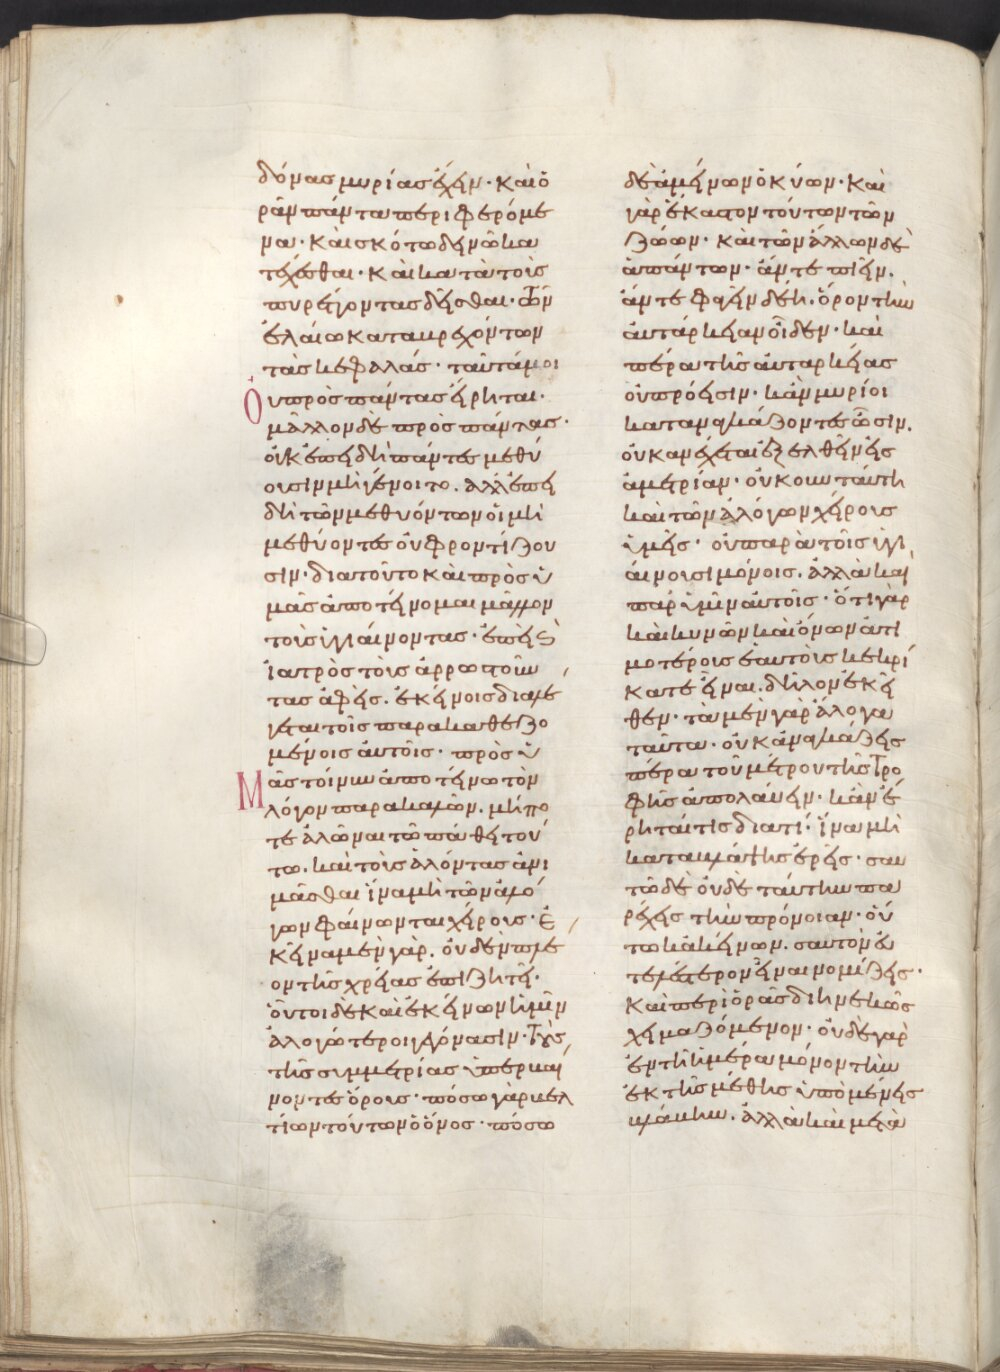 δόνας μυρίας ἔχειν· καὶ ὁ
ρᾶν πάντα περιφερόμε
να· καὶ σκότω δεινῶ κα
τέχεσθαι· καὶ κατὰ τοὺς
πυρέττοντας δεῖσθαι· τῶν
ἐλαίω καταβρεχόντων
τὰς κεφαλάς· ταῦτά μοι
Οὐ πρὸς πάντας εἴρηται·
μᾶλλον δὲ πρὸς πάντας·
οὐκ ἐπειδὴ πάντες μεθύ
ουσιν μὴ γένοιτο. ἀλλ' ἐπει
δὴ τῶν μεθυόντων οἱ μὴ
μεθύοντες οὐ φροντίζου
σιν· διατοῦτο καὶ πρὸς ὑ
μᾶς ἀποτείνομαι μᾶλλον
τοὺς ὑγιαίνοντας· ἐπεὶ καὶ
ἰατρὸς τοὺς ἀρρωστοῦν
τας ἀφεὶς. ἐκείνοις διαλέ
γεται τοῖς παρακαθεζο
μένοις αὐτοῖς· πρὸς ὑ
Μᾶς τοίνυν ἀποτείνω τὸν
λόγον παρακαλῶν. μήπο
τε ἁλῶναι τῶ πάθει τού
τω. καὶ τοὺς ἁλόντας ἀνι
μᾶσθαι ἵνα μὴ τῶν ἀλό
γων φαίνωνται χείρους· ἐ
κεῖνα μὲν γὰρ. οὐδὲν πλέ
ον τῆς χρείας ἐπιζητεῖ·
οὗτοι δὲ καὶ ἐκείνων ἡμῖν
ἀλογώτεροι γεγόνασιν· τοὺς
τῆς συμμετρίας ὑπερβαί
νοντες ὅρους· πόσω γὰρ βελ
τίων τούτων ὁ ὄνος· πόσω
δὲ ἀμείνων ὁ κύων· καὶ
γὰρ ἕκαστον τούτων τῶν
ζώων· καὶ τῶν ἄλλων δὲ
ἁπάντων· ἄν τε πιεῖν.
ἄν τε φαγεῖν δέη. ὅρον τὴν
αὐτάρκειαν οἶδεν· καὶ
πέρα τῆς αὐταρκείας
οὐ πρόεισιν· κἂν μυρίοι
καταναγκάζοντες ὦσιν.
οὐκ ἀνέχεται ἐξελθεῖν εἰς
ἀμετρίαν· οὐκοῦν ταύτη
καὶ τῶν ἀλόγων χείρους
ὑμεῖς· οὐ παρὰ τοῖς ὑγι
αίνουσι μόνοις. ἀλλὰ καὶ
παρ' ὑμῖν αὐτοῖς· ὅτι γὰρ
καὶ κυνῶν καὶ ὄνων ἀτι
μοτέροις ἑαυτοὺς κεκρί
κατε εἶναι. δῆλον ἐκεῖ
θεν· τὰ μὲν γὰρ ἄλογα
ταῦτα· οὐκ ἀναγκάζεις
πέρα τοῦ μέτρου τῆς τρο
φῆς ἀπολαύειν· κἂν ἔ
ρηταί τις διατί· ἵνα μὴ
καταβλάψης ἐρεῖς· σαυ
τῶ δὲ οὐδὲ ταύτην πα
ρέχεις τὴν πρόνοιαν· οὕ
τω κἀκείνων. σαυτὸν εὐ
τελέστερον εἶναι νομίζεις·
καὶ περιορᾶς διηνεκῶς
χειμαζόμενον· οὐδὲ γὰρ
ἐν τῆ ἡμέρα μόνον τὴν
ἐκ τῆς μέθης ὑπομένεις
βλάβην. ἀλλὰ καὶ μετὰ